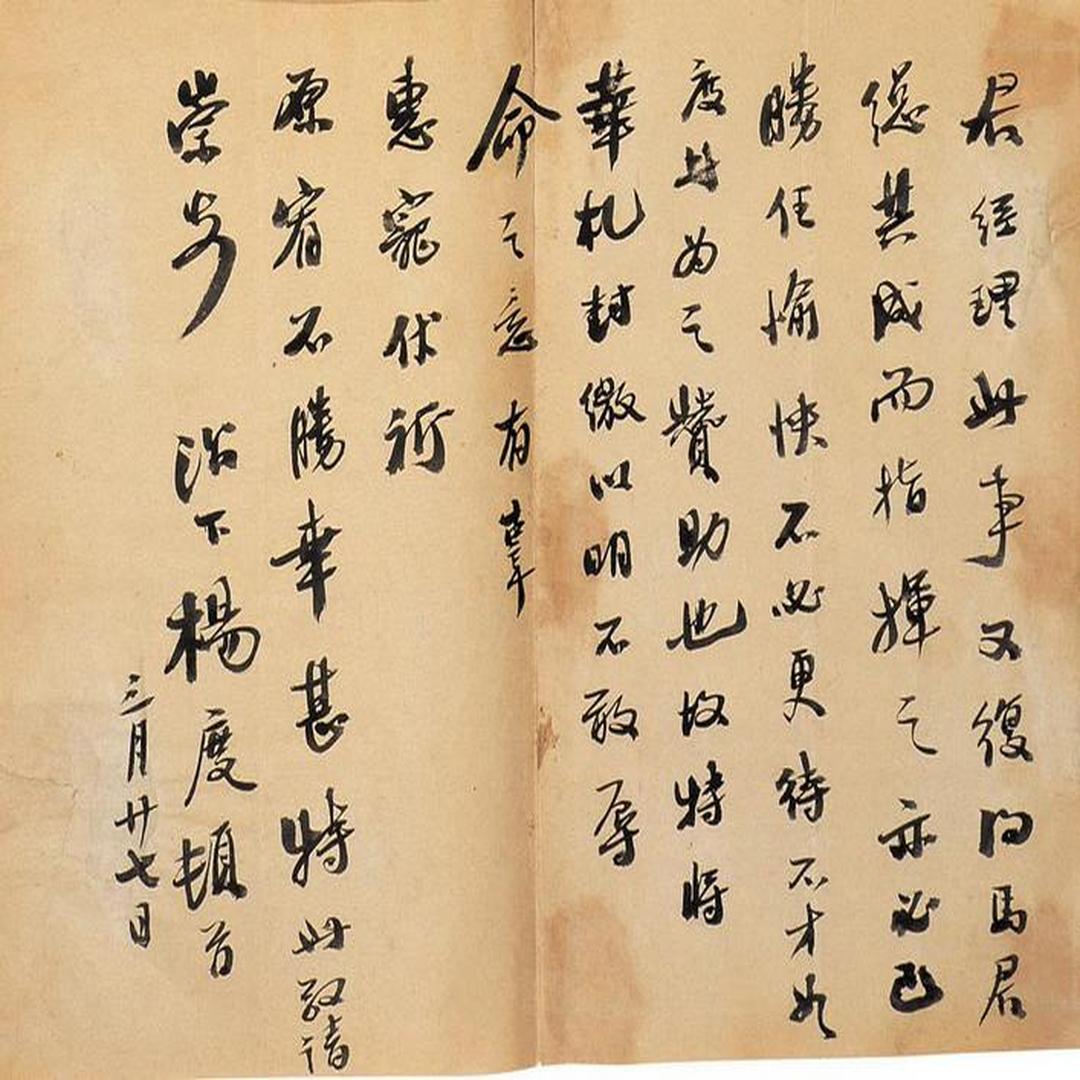 君經理此事又復得馬君
總其成而指揮之亦必已
勝任愉快不必更待不才如
度者為之贊助也故特將
華札封繳以明不敢辱
命之意有辜
惠寵伏祈
原宥不勝幸甚特此敬請
崇安 治下楊度頓首
三月廿七日